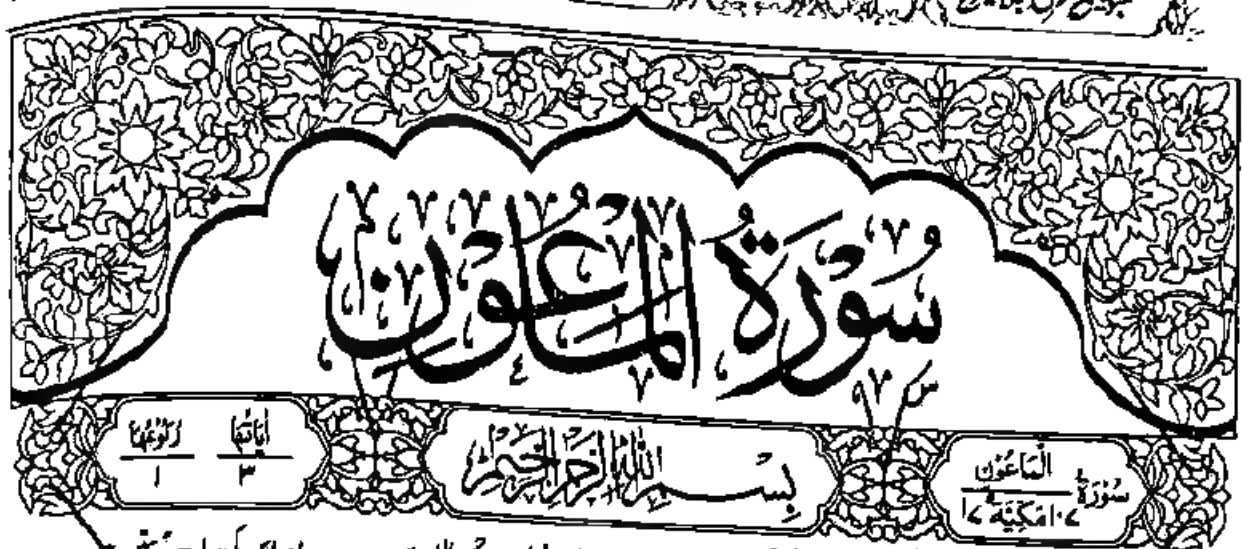 سُوْرَةُ الْمَاعُوْنِ
سُوْرَةُ الْمَاعُوْنِ ١٠٧ مَكِّيَّةٌ ١٧
بِسْمِ اللّٰهِ الرَّحْمٰنِ الرَّحِيْمِ
اٰيَاتُهَا ٣
رُكُوْعُهَا ١